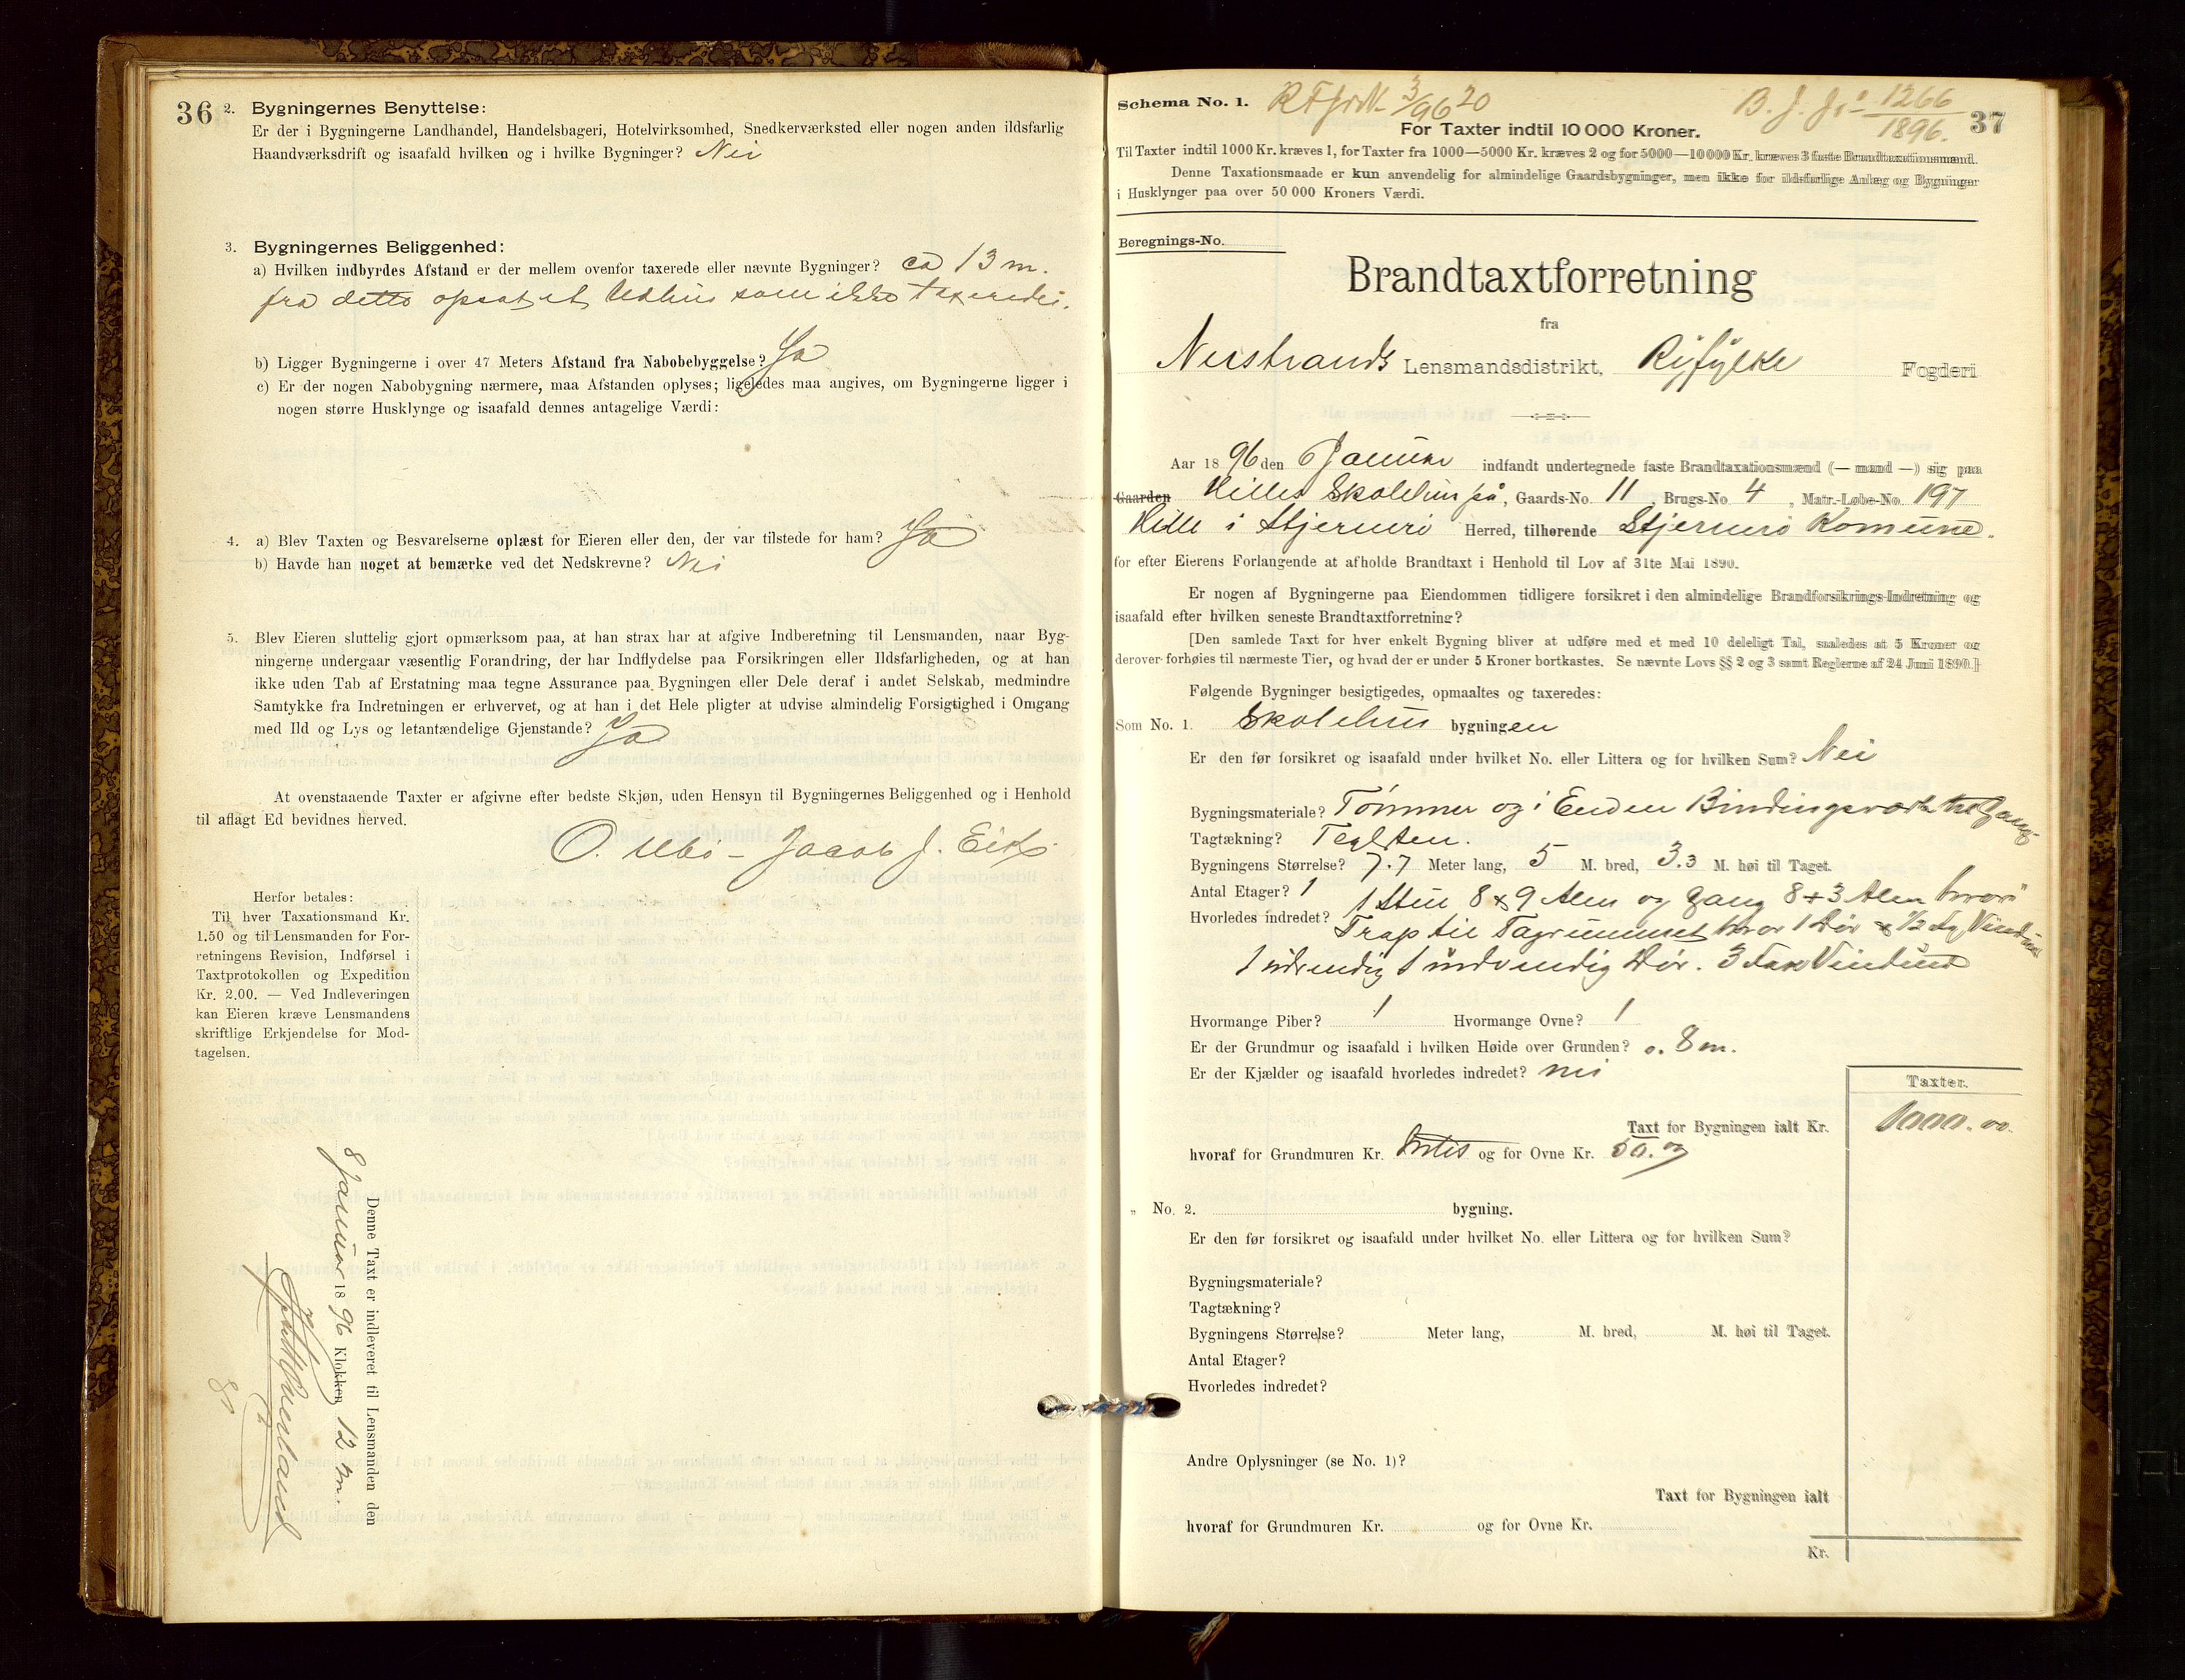 36
2. Bygningernes Benyttelse:
Er der i Bygningerne Landhandel, Handelsbageri, Hotelvirksomhed, Snedkerværksted eller nogen anden ildsfarlig
Haandværksdrift og isaafald hvilken og i hvilke Bygninger? Nei
3. Bygningernes Beliggenhed:
a) Hvilken indbyrdes Afstand er der mellem ovenfor taxerede eller nævnte Bygninger? ca 13 m.
fra dette opsat et Udhus som ikke taxeredes.
b) Ligger Bygningerne i over 47 Meters Afstand fra Nabobebyggelse? Ja
c) Er der nogen Nabobygning nærmere, maa Afstanden oplyses; ligeledes maa angives, om Bygningerne ligger i
nogen større Husklynge og isaafald dennes antagelige Værdi:
4. a) Blev Taxten og Besvarelserne oplæst for Eieren eller den, der var tilstede for ham? Ja
b) Havde han noget at bemærke ved det Nedskrevne? Nei
5. Blev Eieren sluttelig gjort opmærksom paa, at han strax har at afgive Indberetning til Lensmanden, naar Byg-
ningerne undergaar væsentlig Forandring, der har Indflydelse paa Forsikringen eller Ildsfarligheden, og at han
ikke uden Tab af Erstatning maa tegne Assurance paa Bygningen eller Dele deraf i andet Selskab, medmindre
Samtykke fra Indretningen er erhvervet, og at han i det Hele pligter at udvise almindelig Forsigtighed i Omgang
med Ild og Lys og letantændelige Gjenstande? Ja
At ovenstaaende Taxter er afgivne efter bedste Skjøn, uden Hensyn til Bygningernes Beliggenhed og i Henhold
til aflagt Ed bevidnes herved.
O. Ubø - Jacob J. Eike
Herfor betales:
Til hver Taxationsmand Kr.
1.50 og til Lensmanden for For-
retningens Revision, Indførsel i
Taxtprotokollen og Expedition
Kr. 2.00. — Ved Indleveringen
kan Eieren kræve Lensmandens
skriftlige Erkjendelse for Mod-
tagelsen.
Denne Taxt er indleveret til Lensmanden den
8 Januar 1896 Klokken 12 m.
Schema No. 1.
3/96 20
B. J. 1266
1896.
37
For Taxter indtil 10 000 Kroner.
Til Taxter indtil 1000 Kr. kræves 1, for Taxter fra 1000—5000 Kr. kræves 2 og for 5000—10 000 Kr. kræves 3 faste Brandtaxationsmænd.
Denne Taxationsmaade er kun anvendelig for almindelige Gaardsbygninger, men ikke for ildsfarlige Anlæg og Bygninger
i Husklynger paa over 50 000 Kroners Værdi.
Beregnings-No.
Brandtaxtforretning
fra
Nerstrands Lensmandsdistrikt, Ryfylke Fogderi
Aar 1896 den 6 Januar indfandt undertegnede faste Brandtaxationsmænd (— mand —) sig paa
Gaarden Hille Skolehus på, Gaards-No. 11, Brugs-No. 4, Matr.-Løbe-No. 197
Hille i Stjernerö Herred, tilhørende Stjernerö Komune.
for efter Eierens Forlangende at afholde Brandtaxt i Henhold til Lov af 31te Mai 1890.
Er nogen af Bygningerne paa Eiendommen tidligere forsikret i den almindelige Brandforsikrings-Indretning og
isaafald efter hvilken seneste Brandtaxtforretning?
[Den samlede Taxt for hver enkelt Bygning bliver at udføre med et med 10 deleligt Tal, saaledes at 5 Kroner og
derover forhøies til nærmeste Tier, og hvad der er under 5 Kroner bortkastes. Se nævnte Lovs §§ 2 og 3 samt Reglerne af 24 Juni 1890.]
Følgende Bygninger besigtigedes, opmaaltes og taxeredes:
Som No. 1. Skolehus bygningen
Er den før forsikret og isaafald under hvilket No. eller Littera og for hvilken Sum? Nei
Bygningsmateriale? Tømmer og i Enden Bindingsværk til Gang
Tagtækning? Teglsten.
Bygningens Størrelse? 7.7 Meter lang, 5 M. bred, 3.3 M. høi til Taget.
Antal Etager? 1
Hvorledes indredet? 1 Stue 8 x 9 Alen og Gang 8 + 3 Alen hvori
Trap til Tagrummet hvor 1 Dør & 1/2 Fag Vindue
1 udvendig 1 indvendig Dør. 3 Fag Vinduer
Hvormange Piber? 1 Hvormange Ovne? 1
Er der Grundmur og isaafald i hvilken Høide over Grunden? 0. 8 m.
Er der Kjælder og isaafald hvorledes indredet? nei
Taxter.
Taxt for Bygningen ialt Kr. 1000. 00.
hvoraf for Grundmuren Kr. Intet og for Ovne Kr. 50. 00
„ No. 2. bygning.
Er den før forsikret og isaafald under hvilket No. eller Littera og for hvilken Sum?
Bygningsmateriale?
Tagtækning?
Bygningens Størrelse? Meter lang, M. bred, M. høi til Taget.
Antal Etager?
Hvorledes indredet?
Andre Oplysninger (se No. 1)?
Taxt for Bygningen ialt
hvoraf for Grundmuren Kr. og for Ovne Kr.
Kr.